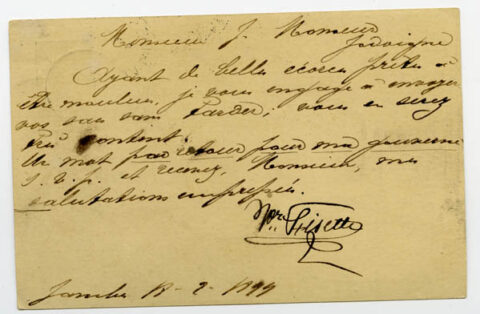 Monsieur J. Monseur
Jodoigne
Ayant de belles écorces prêtes à
être moulues, je vous engage à envoyer
vos sacs sans tarder; vous en serez
très content.
Un mot par retour pour ma gouverne
s.v.p. et recevez, Monsieur, mes
salutations empressées.
Fisette
Jambes 18-2-1899